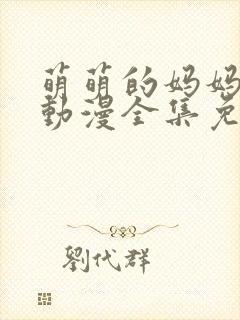 萌萌的妈妈
動漫全集免
劉代群